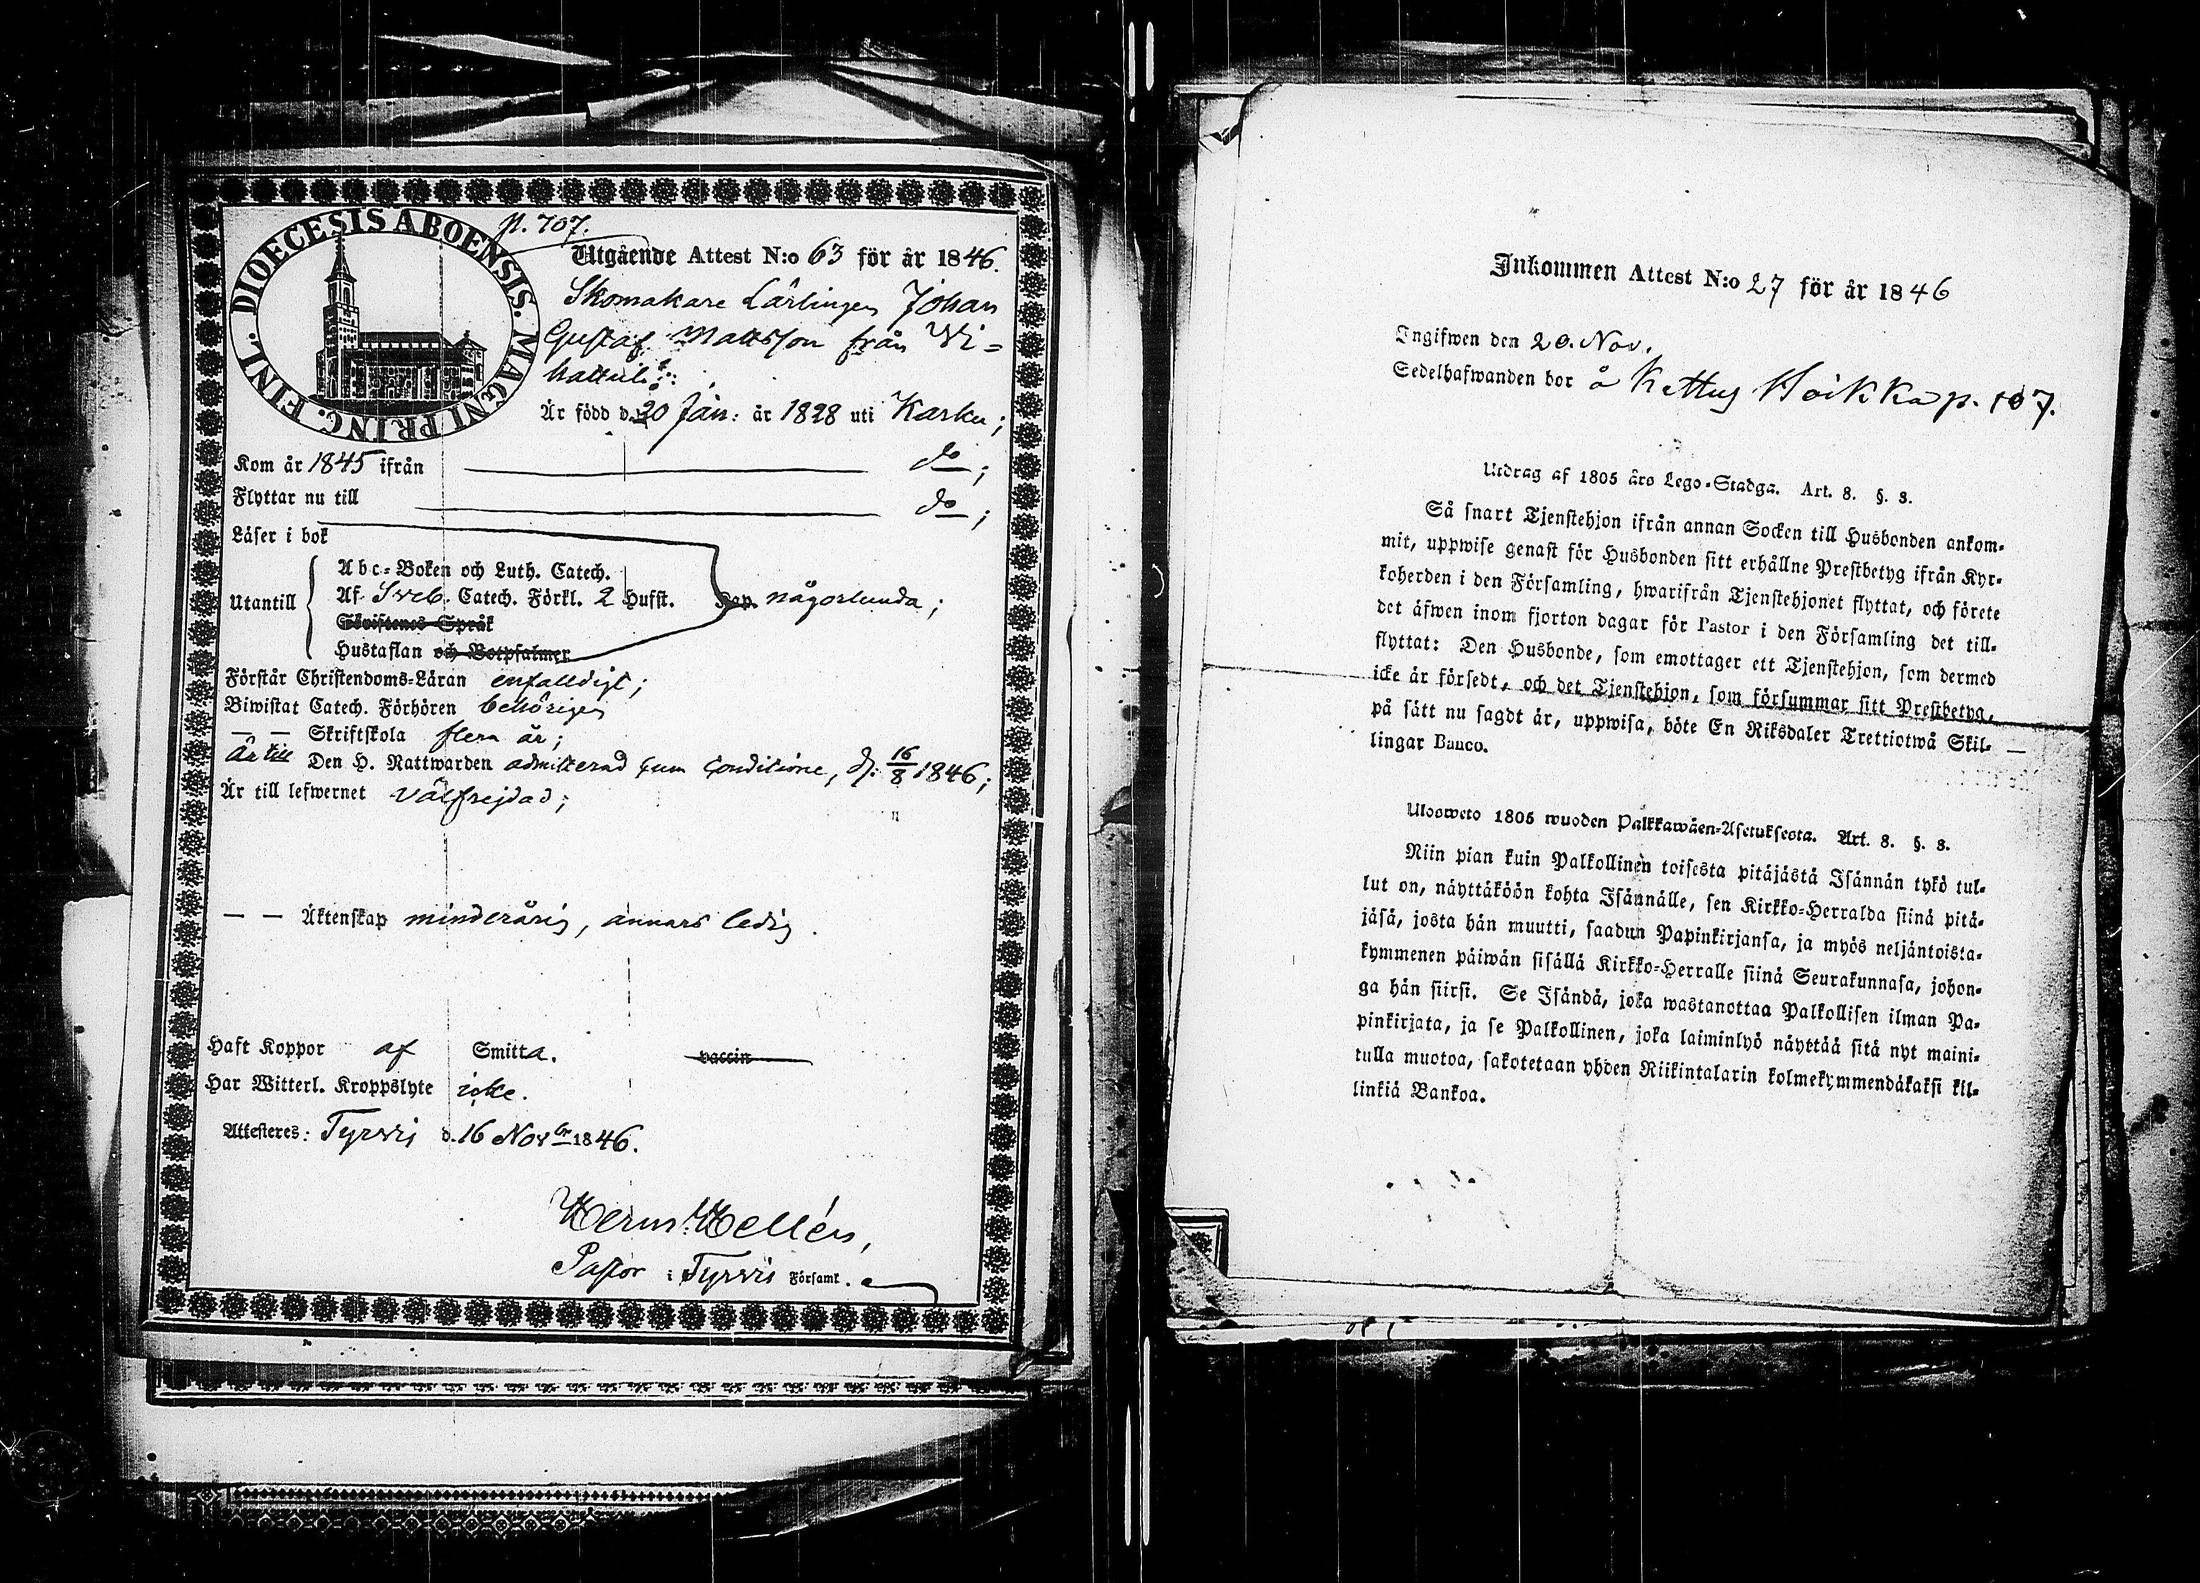 FINL. DIOECESIS ABOENSIS. MAGNI PRINC.
p. 707.
Utgående Attest N:o 63 för år 1846.
Skomakare Lärlingen Johan
Gustaf Mattsson från Wi=
hattula:
Är född d. 20 Jan: år 1828 uti Karku;
Kom år 1845 ifrån do;
Flyttar nu till do;
Läser i bok
Abc=Boken och Luth. Catech.
Utantill Af Sveb. Catech. Förkl. 2 Hufst. Kap. någorlunda;
Skriftenes Språk
Hustaflan och Botpsalmer
Förstår Christendoms=Läran enfaldigt;
Biwistat Catech. Förhören behörigen
— — Skriftskola flera år;
Är till Den H. Nattwarden admitterad cum conditione, d. 16/8 1846;
Är till lefwernet välfrejdad;
— — Äktenskap minderårig, annars ledig.
Haft Koppor af Smitta. vaccin
Har Witterl. Kroppslyte icke.
Attesteres: Tyrvis d. 16 Novbr 1846.
Herm. Hellén,
Pastor i Tyrvis FörSaml.
Inkommen Attest N:o 27 för år 1846
Ingifwen den 20. Nov.
Sedelhafwanden bor å Kettus Hoikka p. 107.
Utdrag af 1805 års Lego=Stadga. Art. 8. §. 3.
Så snart Tjenstehjon ifrån annan Socken till Husbonden ankom=
mit, uppwise genast för Husbonden sitt erhållne Prestbetyg ifrån Kyr=
koherden i den Församling, hwarifrån Tjenstehjonet flyttat, och förete
det äfwen inom fjorton dagar för Pastor i den Församling det till=
flyttat: Den Husbonde, som emottager ett Tjenstehjon, som dermed
icke är försedt, och det Tjenstehjon, som försummar sitt Prestbetyg,
på sätt nu sagdt är, uppwisa, böte En Riksdaler Trettiotwå Skil=
lingar Banco.
Ulosweto 1805 wuoden Palkkawäen=Asetuksesta. Art. 8. §. 3.
Niin pian kuin Palkollinen toisesta pitäjästä Isännän tykö tul=
lut on, näyttäköön kohta Isännälle, sen Kirkko=Herralda siinä pitä=
jäsä, josta hän muutti, saadun Papinkirjansa, ja myös neljäntoista=
kymmenen päiwän sisällä Kirkko=Herralle siinä Seurakunnasa, johon=
ga hän siirsi. Se Isändä, joka wastanottaa Palkollisen ilman Pa=
pinkirjata, ja se Palkollinen, joka laiminlyö näyttää sitä nyt maini=
tulla muotoa, sakotetaan yhden Riikintalarin kolmekymmendäkaksi kil=
linkiä Bankoa.